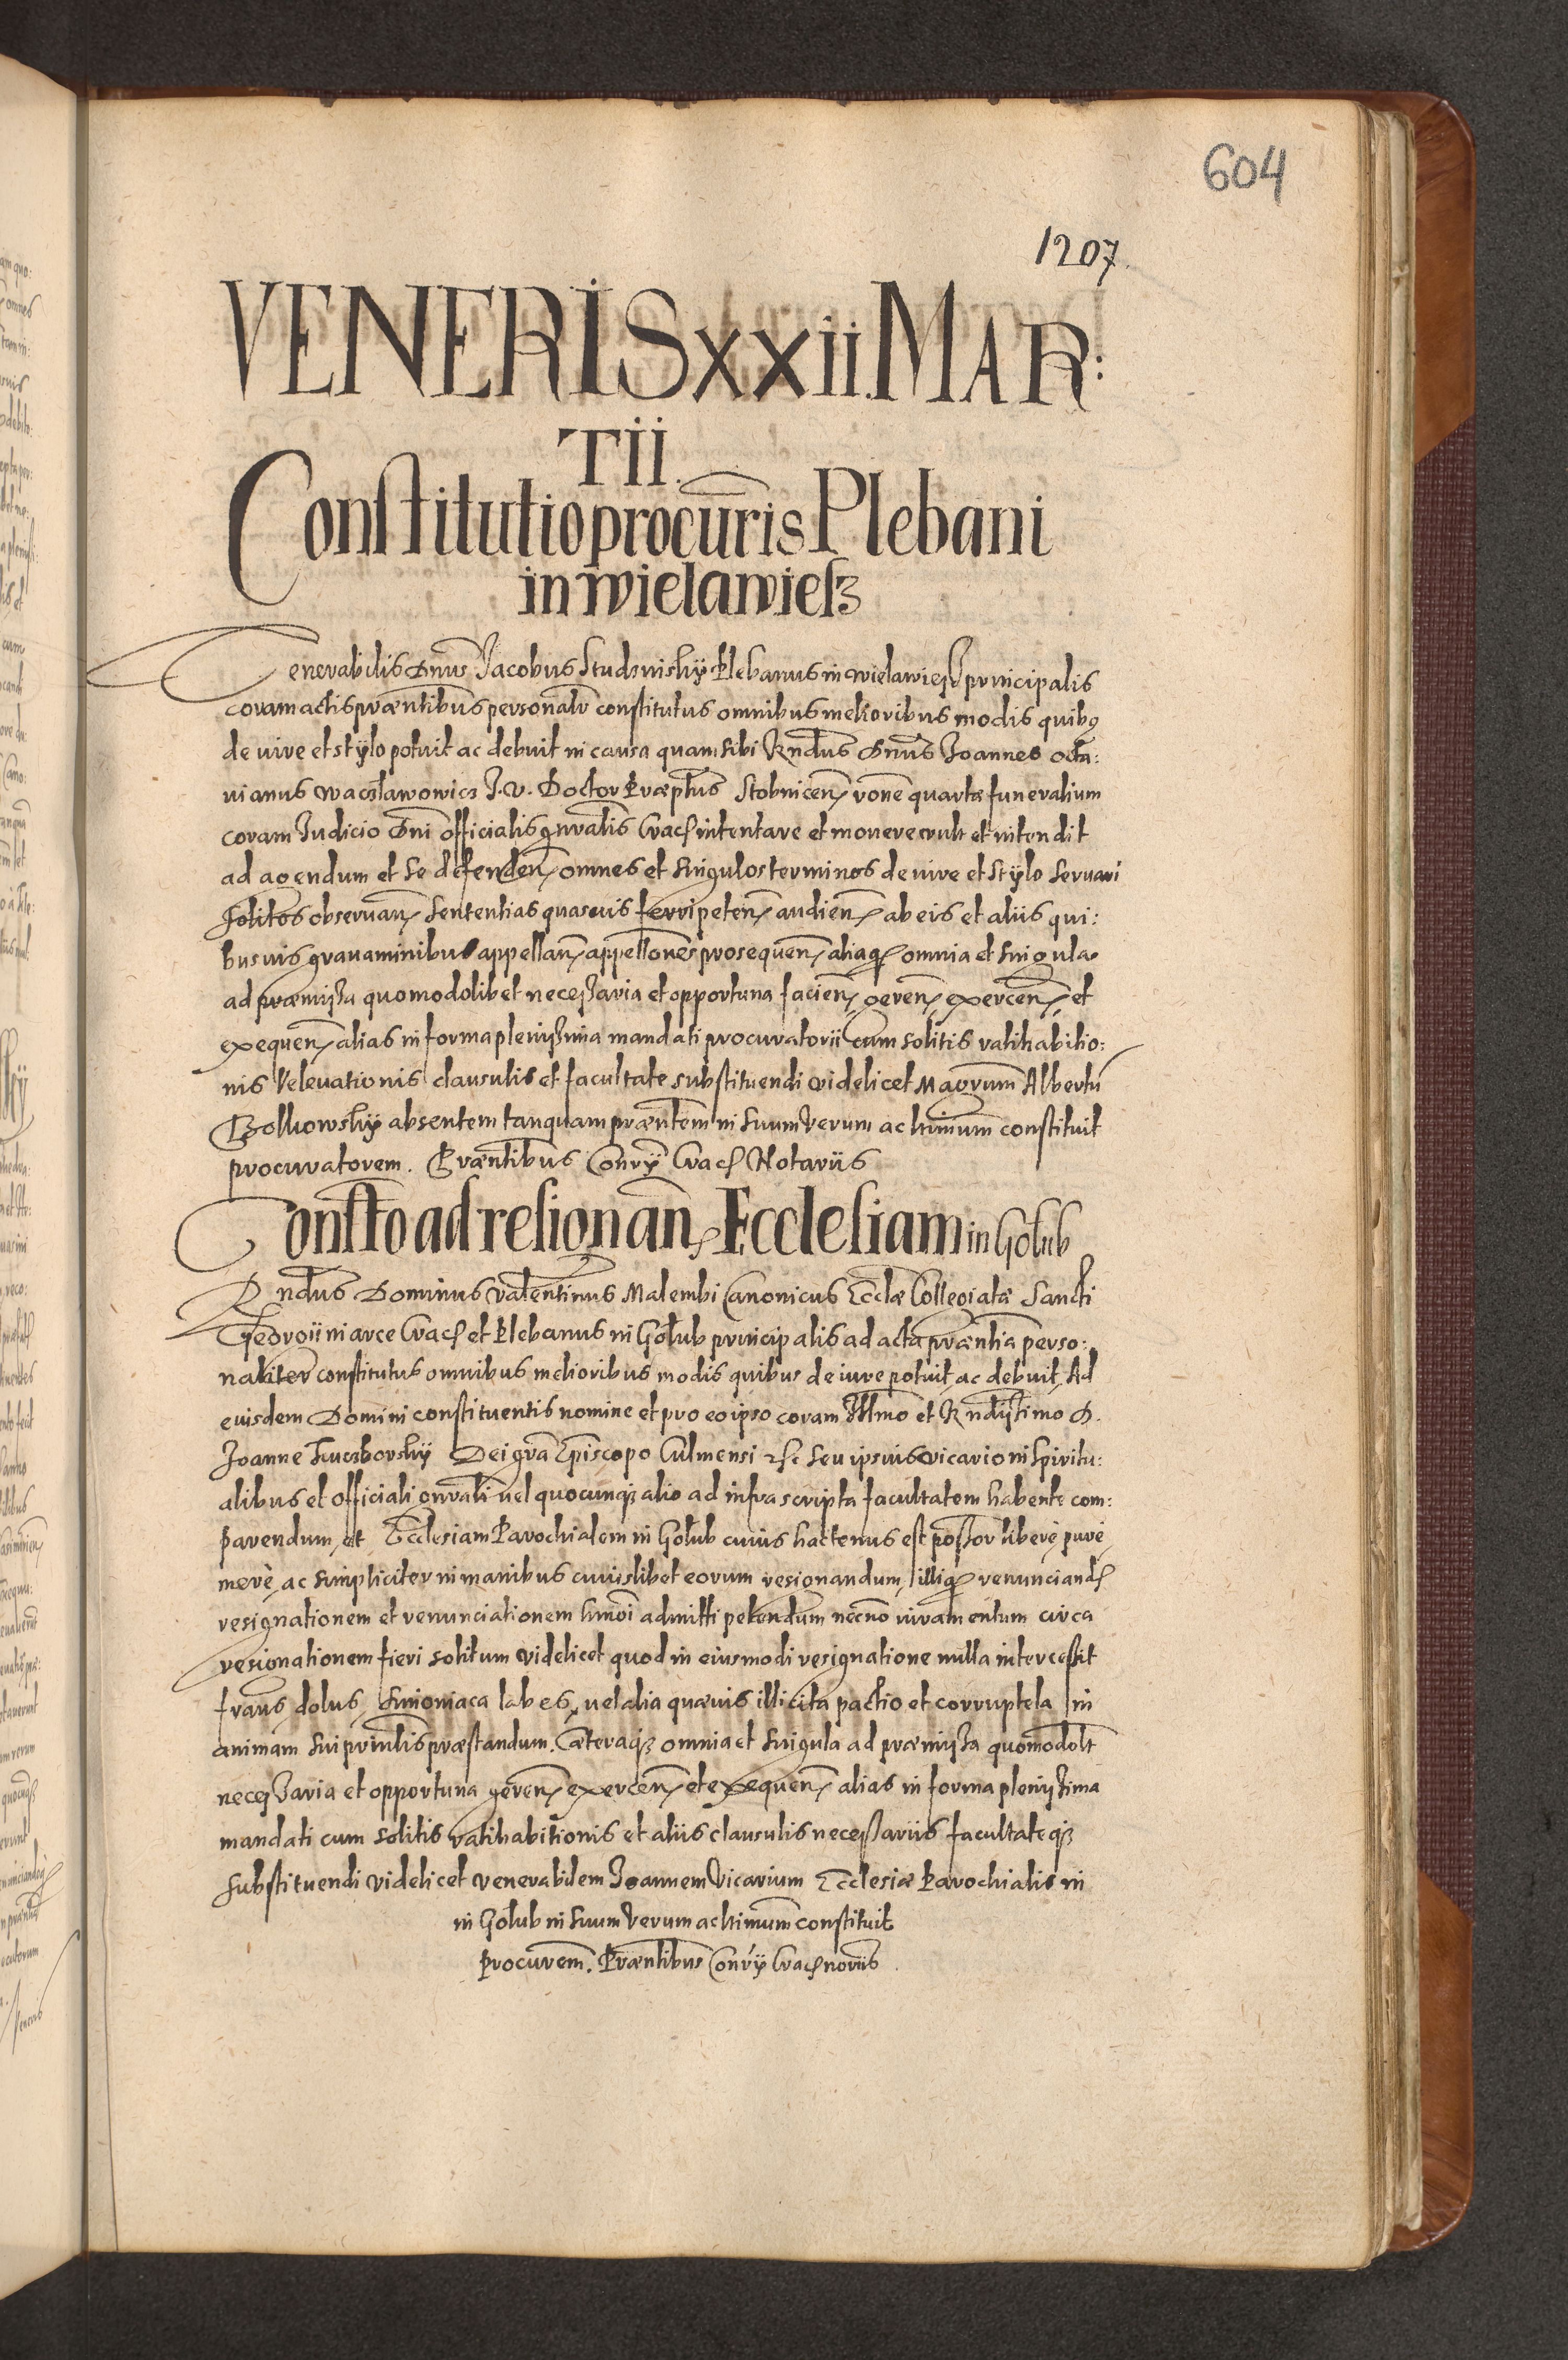 604
1207.
VENERIS xxii. MAR:
TII.
Constitutio procuris Plebani
in wielawiesz
Venerabilis Dnus Jacobus Studniskÿ Plebanus in wielawiesz principalis
coram actis præntibus personalr constitutus omnibus melioribus modis quibq
de iure et stÿlo potuit ac debuit in causa quam sibi Rndus Dnus Joannes octa:
uianus wacslawowicz J. V. Doctor Præptus Stobnicen rone quartæ funeralium
coram Judicio Dni officialis gnralis Crac intentare et mouere vult et intendit
ad agendum et se defenden omnes et singulos terminos de iure et stÿlo seruari
solitos obseruan sententias quasuis ferri peten audien ab eis et aliis qui:
busuis grauaminibus appellan appellones prosequen aliaq omnia et singula
ad præmissa quomodolibet necessaria et opportuna facien geren exercen et
exequen alias in forma plenissima mandati procuratorii cum solitis ratihabitio:
nis releuationis clausulis et facultate substituendi videlicet Magrum Albertu
absentem tanquam præntem in suum verum ac ltimum constituit
procuratorem. Præntibus Conrÿ Crac Notariis
Constto ad resignan Ecclesiam in Golub
Rndus Dominus Valentinus Malembi Canonicus Eccлæ Collegiatæ Sancti
Georgii in arce Crac et Plebanus in Golub principalis ad acta præntia perso:
naliter constitutus omnibus melioribus modis quibus de iure potuit ac debuit, Ad
euisdem Domini constituentis nomine et pro eo ipso coram Illmo et Rndissimo D.
Joanne Kuczborskÿ Dei gra Episcopo Culmensi &c seu ipsius vicario in spiritu:
alibus et officiali gnrali uel quocunq alio ad infrascripta facultatem habente com:
parendum, et Ecclesiam Parochialem in Golub cuius hactenus est possor liberè, purè,
merè, ac simpliciter in manibus cuiuslibet eorum resignandum, illiq renunciand
resignationem et renunciationem hmoi admitti petendum necno iuramentum circa
resignationem fieri solitum videlicet quod in eiusmodi resignatione nulla intercessit
fraus, dolus, simoniaca labes, uel alia quæuis illicita pactio et corruptela in
animam sui prinlis præstandum. Cæteraq omnia et singula ad præmissa quomodolt
necessaria et opportuna geren exercen et exequen alias in forma plenissima
mandati cum solitis ratihabitionis et aliis clausulis necessariis facultateq
substituendi videlicet venerabilem Joannem Vicarium Ecclesiæ Parochialis in
in Golub in suum verum ac ltimum constituit
Procurem. Præntibus Conrÿ Crac noriis